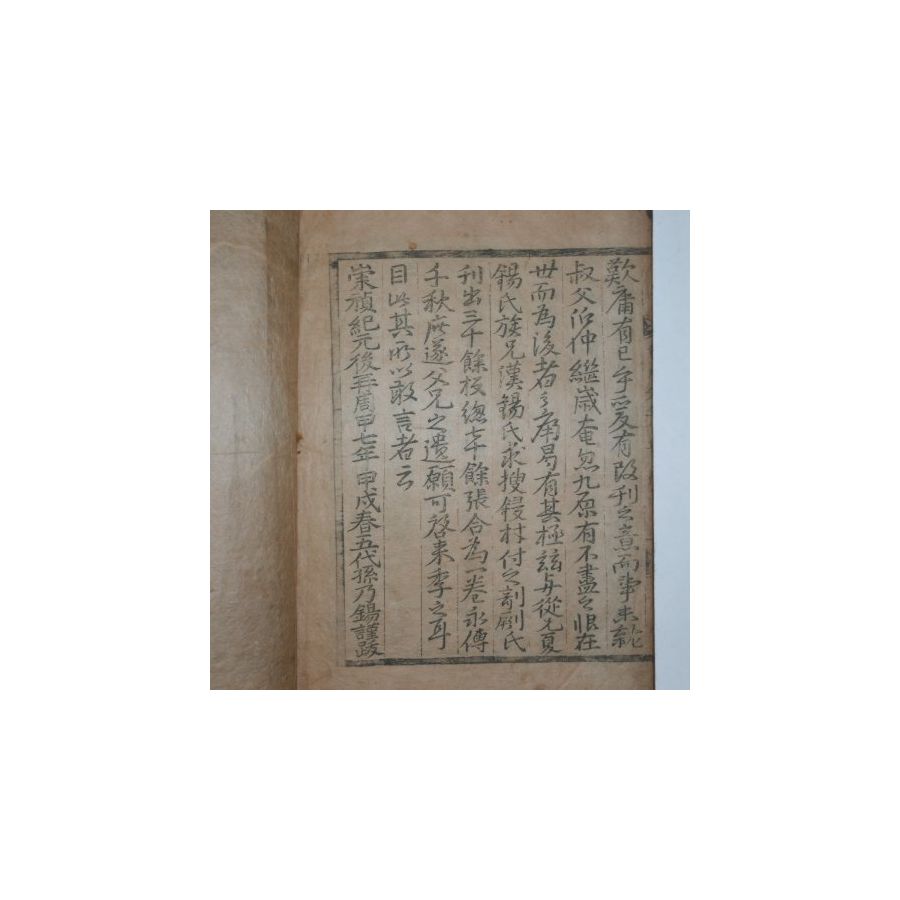 歎庸有已乎爰有改刊之意而事未就
叔父伯仲繼歲奄忽九原有不盡之恨在
世而為後者之痛曷有其極玆与從兄夏
錫氏族兄漢錫氏求搜鋟材付之剞劂氏
刊出三十餘板總七十餘張合為一卷永傳
千秋庶遂父兄之遺願可啓来季之耳
目此其所以敢言者云
崇禎紀元後三周甲七年甲戌春五代孫乃錫謹跋